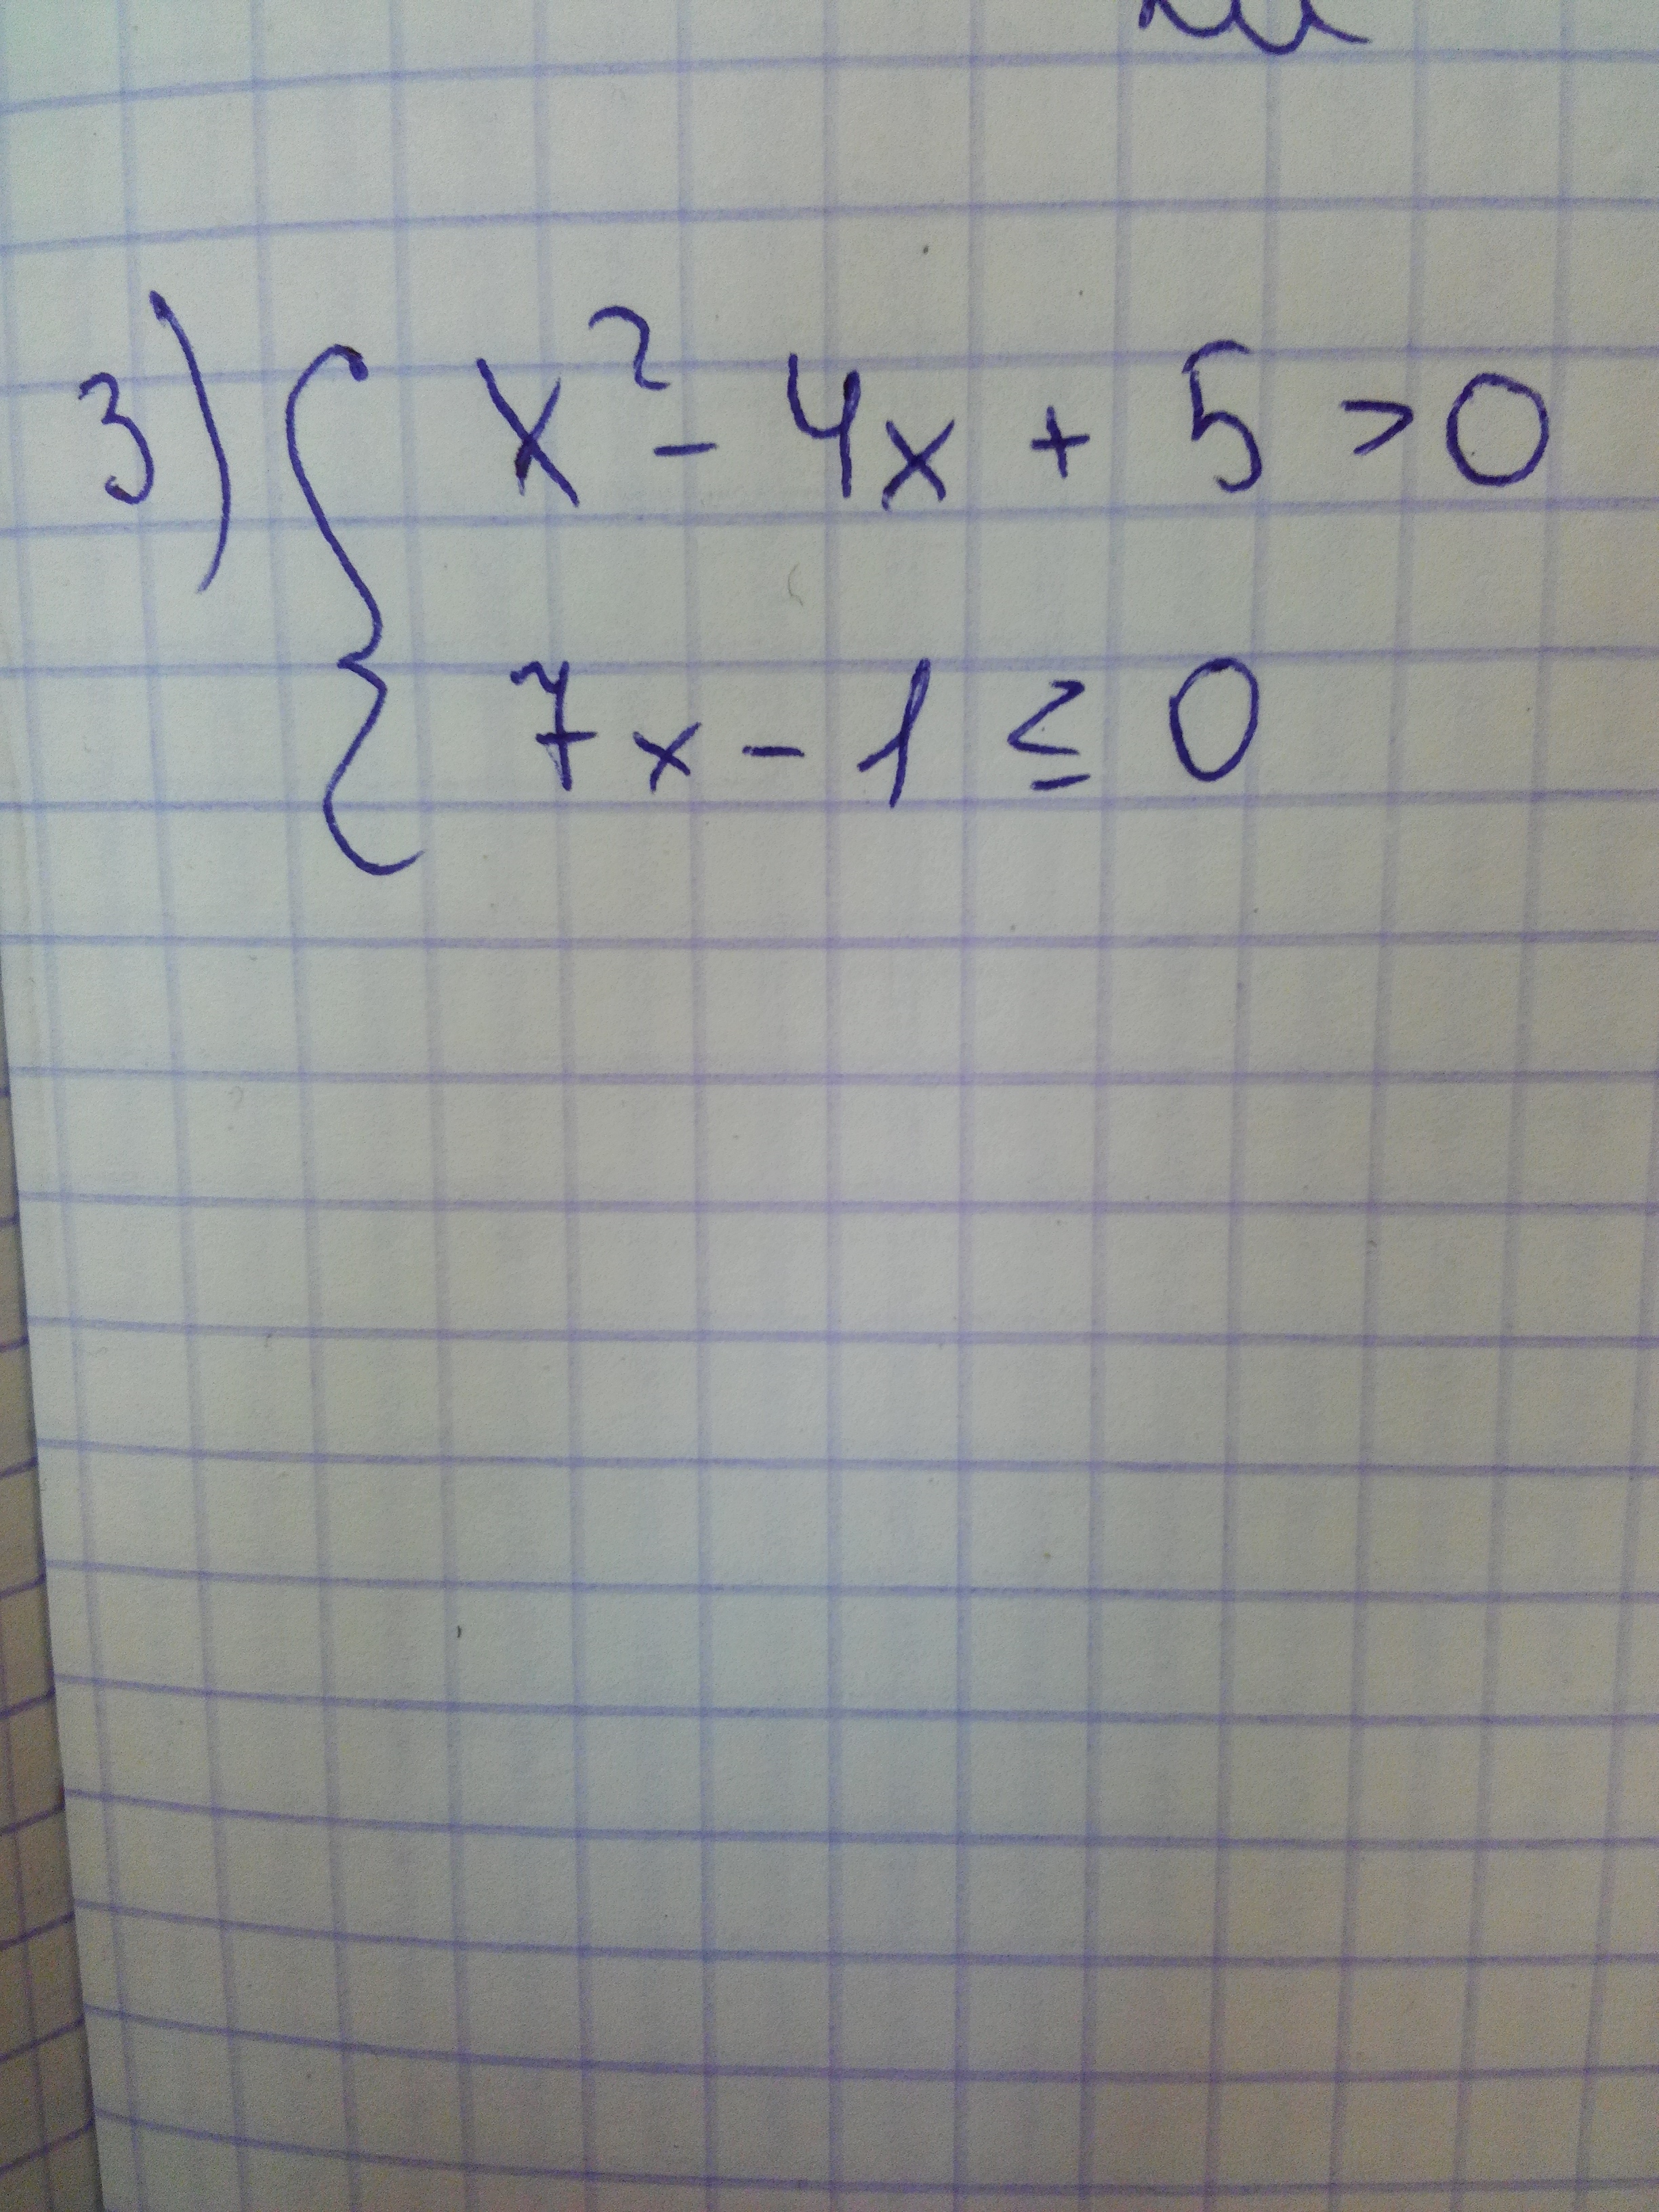 3) { x² - 4x + 5 > 0
7x - 1 ≤ 0